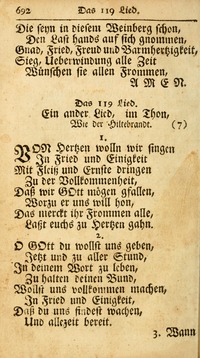 692 Das 119 Lied.
Die seyn in diesem Weinberg schon,
Den Last hands auf sich gnommen,
Gnad, Fried, Freud und Barmhertzigkeit,
Sieg, Ueberwindung alle Zeit
Wünschen sie allen Frommen,
A M E N.
Das 119 Lied.
Ein ander Lied, im Thon,
Wie der Hiltebrandt. (7)
1.
VON Hertzen wolln wir singen
In Fried und Einigkeit
Mit Fleiß und Ernste dringen
Zu der Vollkommenheit,
Daß wir GOtt mögen gfallen,
Worzu er uns will hon,
Das merckt ihr Frommen alle,
Laßt euchs zu Hertzen gahn.
2.
O GOtt du wollst uns geben,
Jetzt und zu aller Stund,
In deinem Wort zu leben,
Zu halten deinen Bund,
Wollst uns vollkommen machen,
In Fried und Einigkeit,
Daß du uns findest wachen,
Und allezeit bereit.
3. Wann